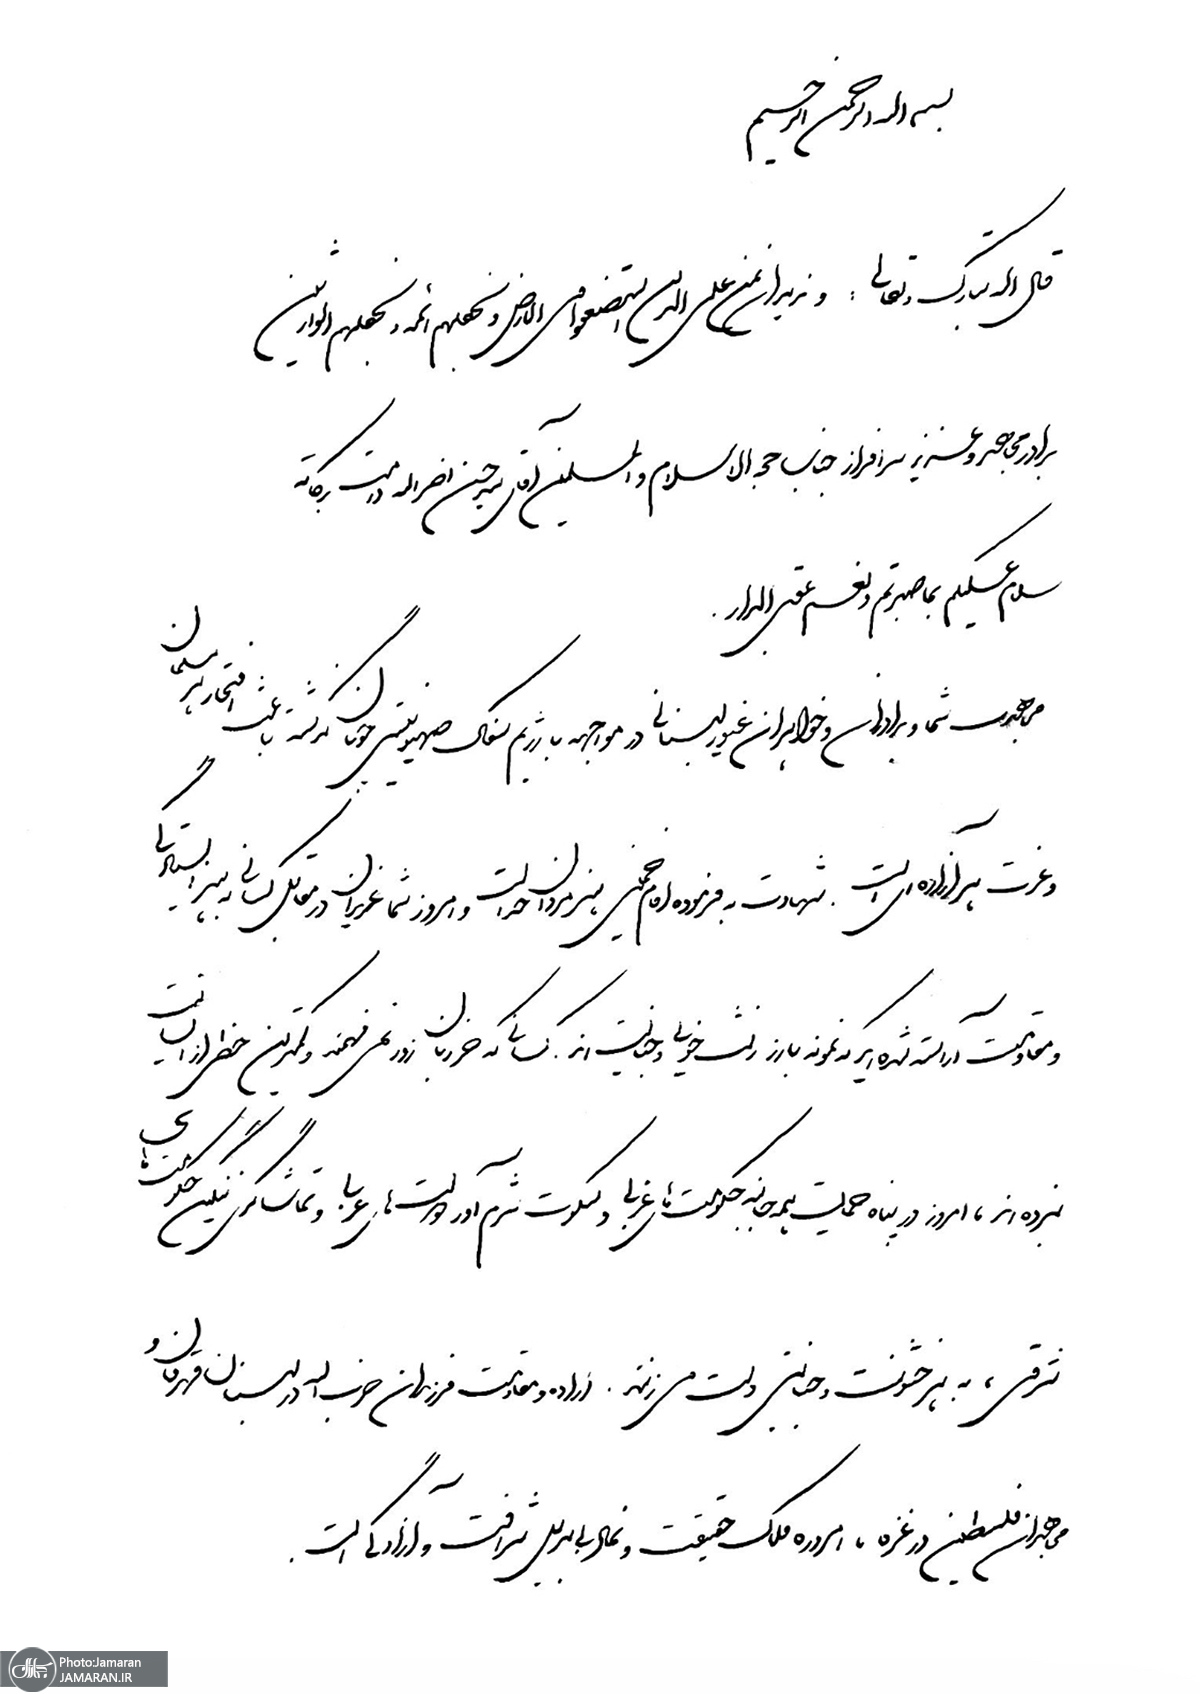 بسم الله الرحمن الرحیم
قال الله تبارک و تعالی : و نرید ان نمن علی الذین استضعفوا فی الارض و نجعلهم ائمه و نجعلهم الوارثین
برادر مجاهد و عزیز سرافراز جناب حجه الاسلام و المسلمین آقای سید حسن نصر الله دامت برکاته
سلام علیکم بما صبرتم و نعم عقبی الدار .
مجاهدت شما و برادران و خواهران غیور لبنانی در مواجهه با رژیم سفاک صهیونیستی چونان گذشته باعث افتخار هر مسلمان
و عزت هر آزاده ای است . شهادت به فرموده امام خمینی هنر مردان خداست و امروز شما عزیزان در مقابل کسانی به هنر ایستادگی
و مقاومت آراسته شده اید که نمونه بارز زشت خویی و جنایت اند . کسانی که جز زبان زور نمی فهمند و کمترین حظی از انسانیت
نبرده اند ، امروز در پناه حمایت همه جانبه حکومت های غربی و سکوت شرم آور دولت های عربی و تماشاگری ننگین حکومت های
شرقی ، به هر خشونت و جنایتی دست می زنند . اراده و مقاومت فرزندان حزب الله در لبنان قهرمان و
مجاهدان فلسطین در غزه ، امروزه ملاک حقیقت و نماد بی بدیل شرافت و آزادگی است .
Photo:Jamaran
JAMARAN.IR